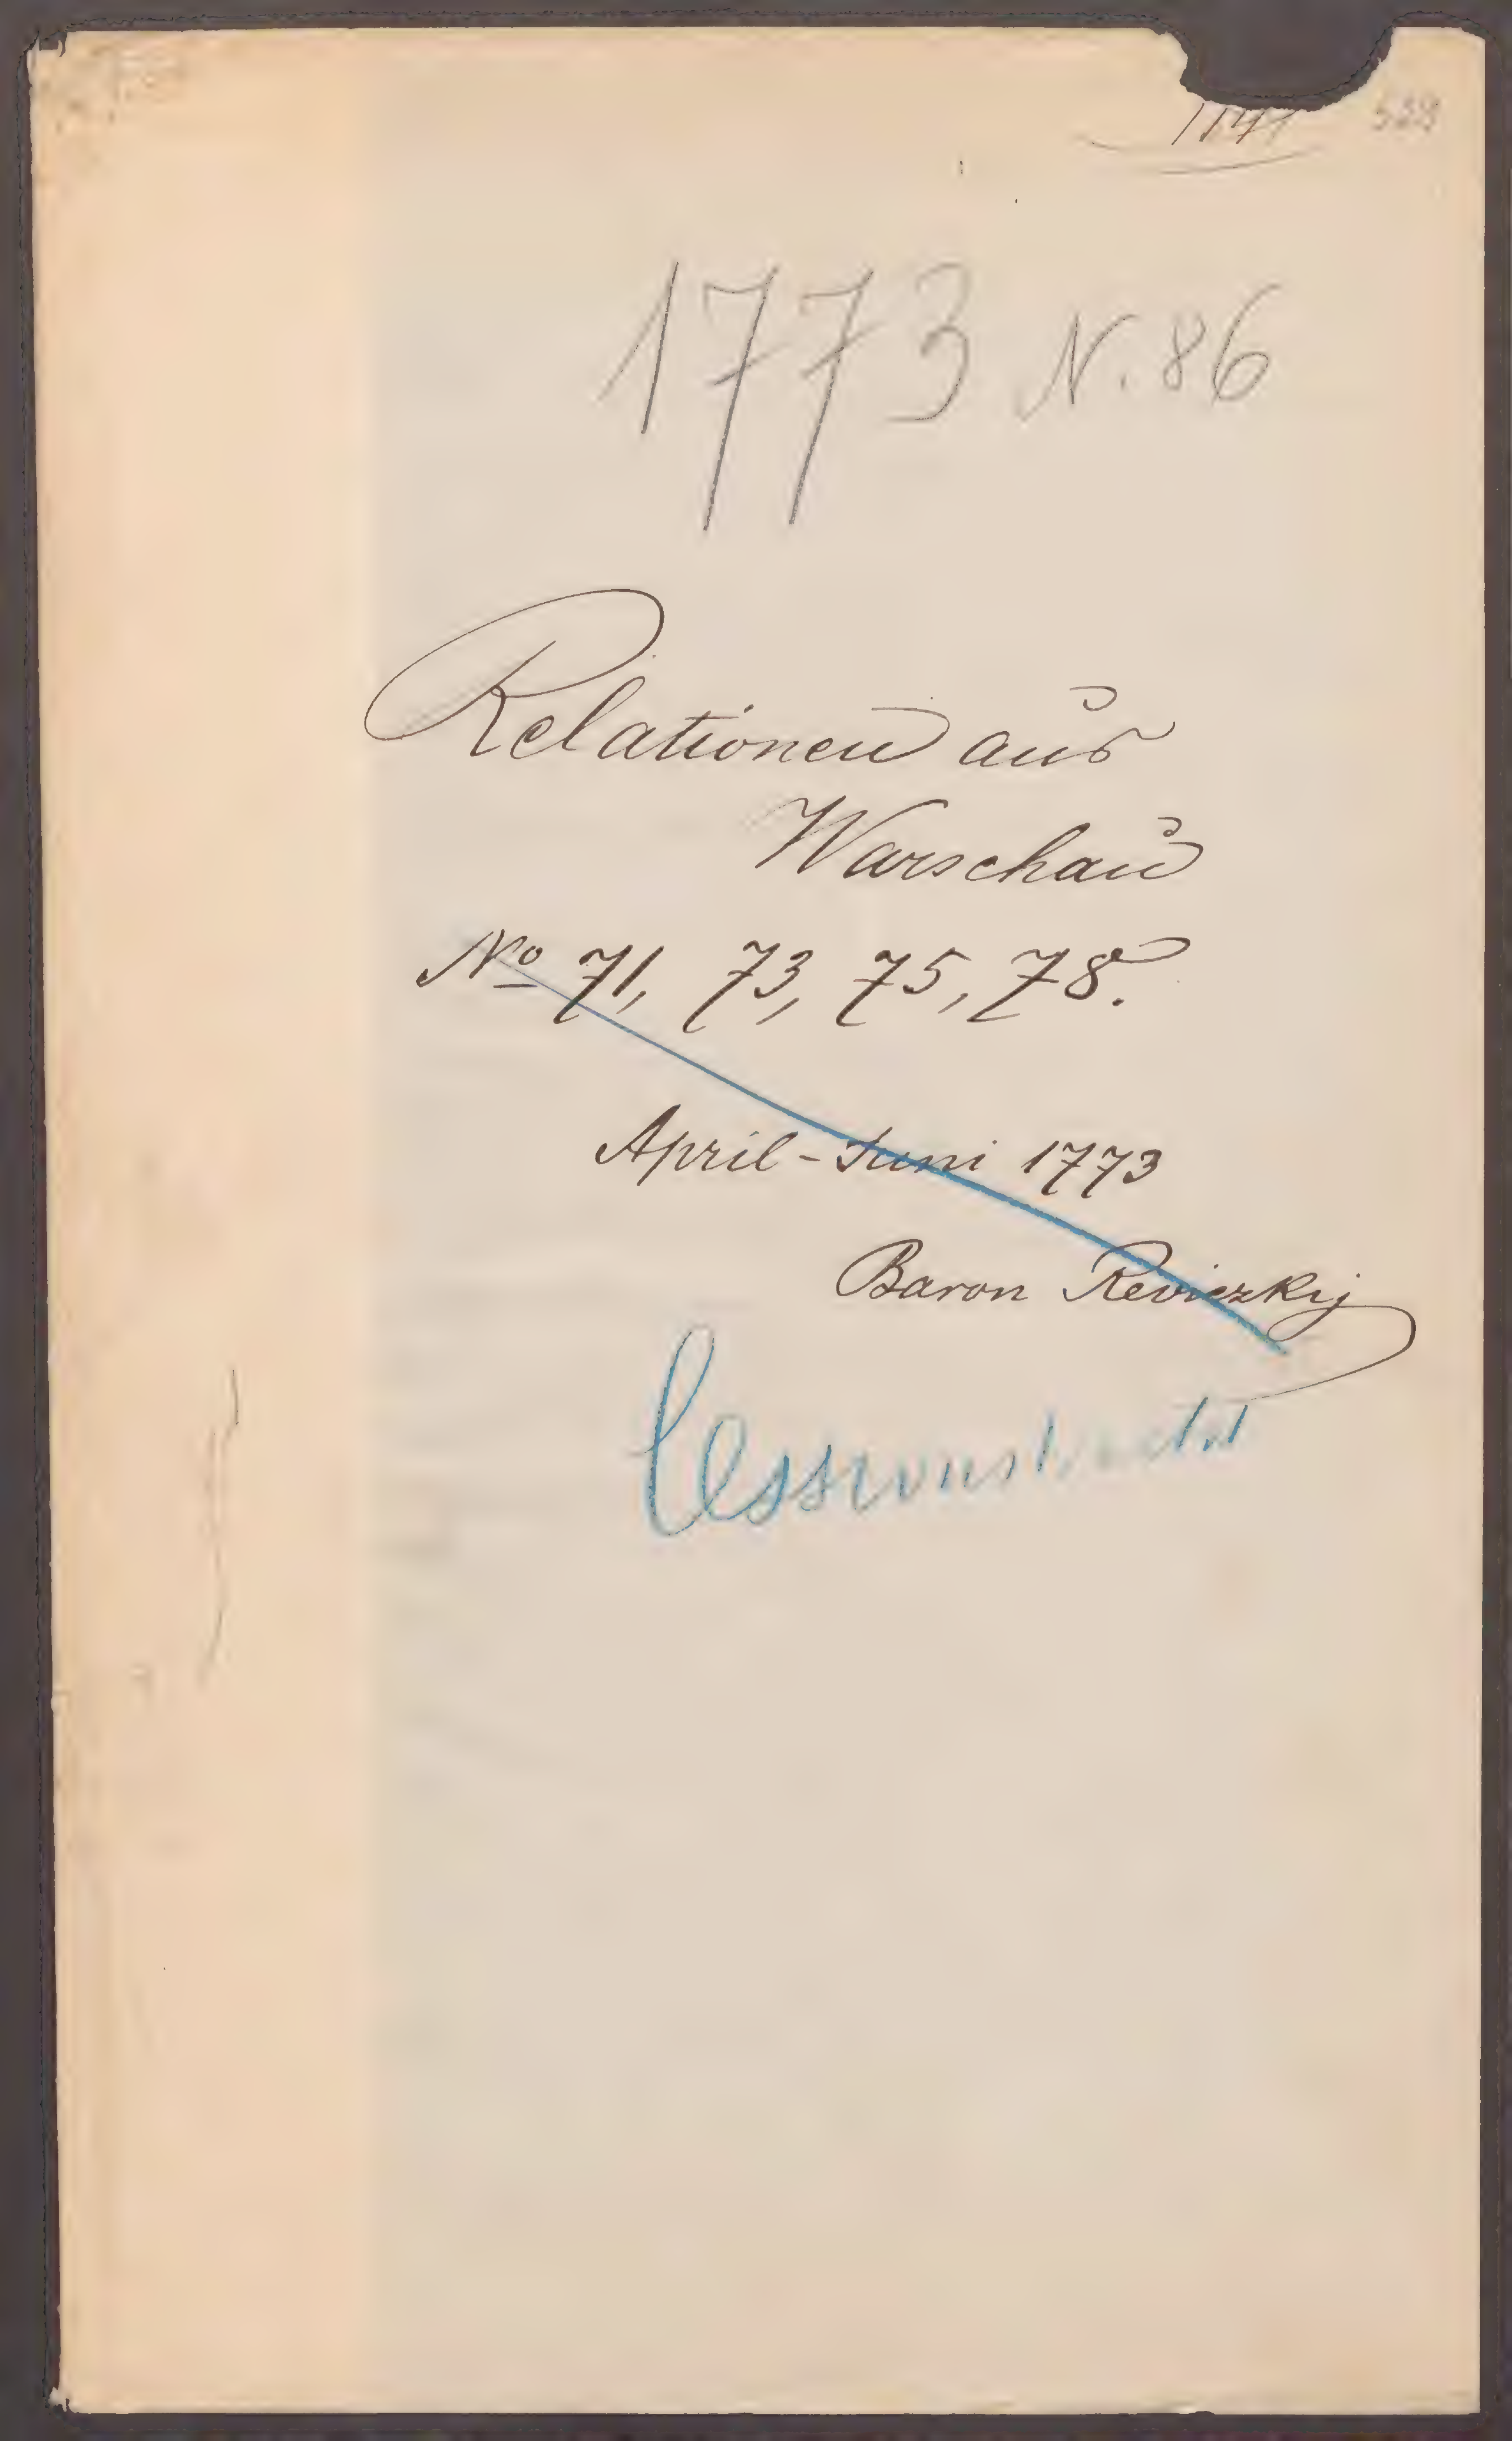 1773 N. 86
Relationen aus
Warschau
No 71, 73, 75, 78.
April - Juni 1773
Baron Reviczkij